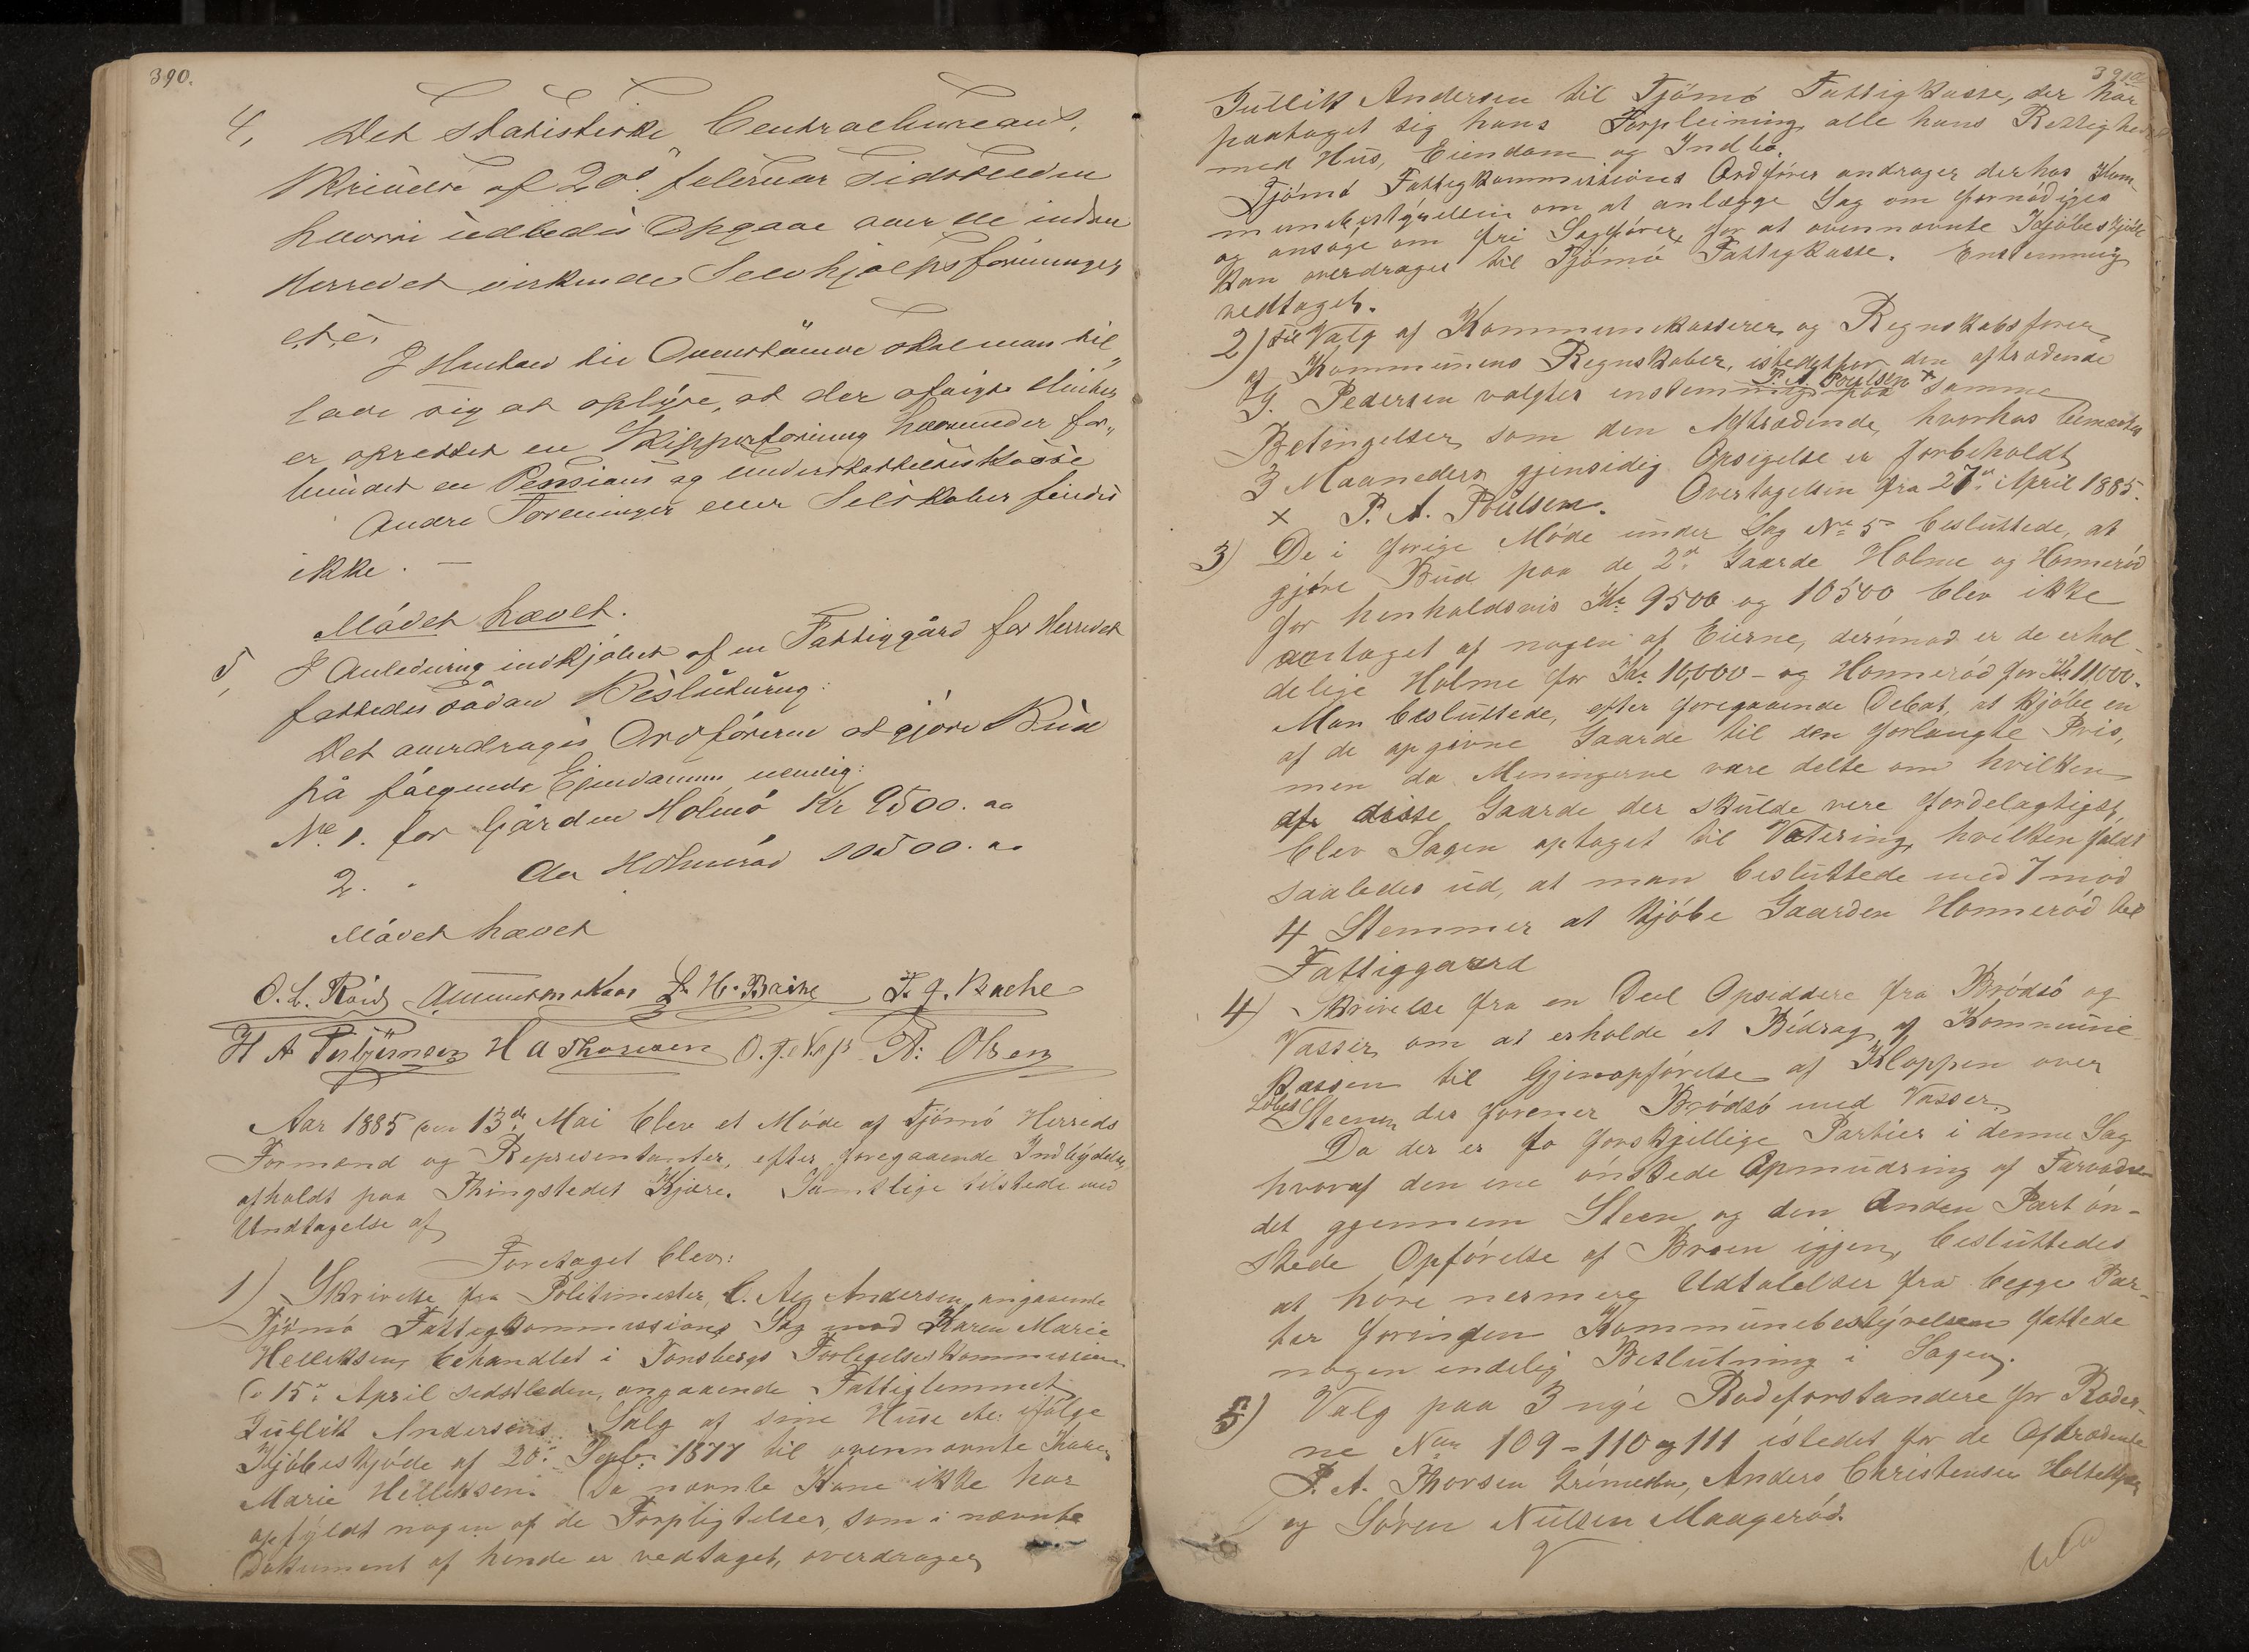 390.
4, Det statistiske Centralbureaus,
Skrivelse af 20de februar sidstleden
hvori udbedes Opgave over de inden
Herredet virkende Selvhjælpsforeninger
etc.
I Henhold til Ovenstående skal man til„
lade sig at oplyse, at der afvigte Vinter
er oprettet en Skipperforening hvorunder for„
bundet en Pensions og Understøttelseskasse
Andre Foreninger eller Selskaber findes
ikke. —
Mödet hævet.
5, I Anledning indkjöbet af en Fattiggård for Herredet
fattedes sådan Beslutning:
Det overdrages Ordföreren at gjöre Bud
på fölgende Ejendomme, nemlig:
No 1. for Gården Holmö Kr 9500. oo
2. " do Honneröd 10500. oo
Mödet hævet
O. C. Röid Ammon Kaas L. H. Bache F. J. Bache
H A Torbjörnsen H A Thorsen O. J. Næs A: Olsen
Aar 1885 den 13de Mai blev et Möde af Tjömö Herreds
Formænd og Representanter, efter foregaaende Indbydelse,
afholdt paa Thingstedet Kjære. Samtlige tilstede med
Undtagelse af
Foretaget blev:
1) Skrivelse fra Politimester C. Aug Andersen angaaende
Tjömö Fattigkommissions Sag mod Karen Marie
Helliksen, behandlet i Tønsbergs Forligelseskommission
d 15de April sidstleden, angaaende Fattiglemmet
Gullik Andersens Salg af sine Huse etc. ifølge
Kjöbeskjöde af 20de Septbr 1877 til ovennævnte Karen
Marie Helliksen. Da nævnte Kone ikke har
opfyldt nogen af de Forpligtelser, som i nævnte
Dokument af hende er vedtaget, overdrager
391
Gullik Andersen til Tjömö Fattigkasse, der har
paataget sig hans Forpleining, alle hans Rettigheder
med Hus, Eiendom og Indbo.
Tjömö Fattigkommissions Ordförer andrager derhos Kom-
munebestyrelsen om at anlægge Sag om fornödiges
og ansöge om fri Sagförer, for at ovennævnte Kjöbeskjöde
kan overdrages til Tjömö Fattigkasse. Enstemmig
vedtaget.
2) Til Valg af Kommunekasserer og Regnskabsförer
af Kommunens Regnskaber, istedetfor den aftrædende
G. Pedersen valgtes enstemmig P. A. Poulsen x paa samme
Betingelser, som den Aftrædende, hvorhos bemærkes
3 Maaneders gjensidig Opsigelse er forbeholdt,
x P. A. Poulsen. Overtagelsen fra 27de April 1885.
3) De i forige Möde under Sag No 5 besluttede, at
gjöre Bud paa de 2de Gaarde Holme og Honneröd
for henholdsvis Kr 9500 og 10500 blev ikke
antaget af nogen af Eierne, derimod er de erhol-
delige Holme for Kr. 10,000 - og Honneröd for Kr 11,000.
Man besluttede, efter foregaaende Debat, at kjöbe en
af de opgivne Gaarde til den forlangte Pris,
men da Meningerne vare delte om hvilken
af disse Gaarde der skulde være fordelagtigst,
blev Sagen optaget til Votering, hvilken faldt
saaledes ud, at man besluttede med 7 mod
4 Stemmer at kjöbe Gaarden Honneröd til
Fattiggaard
4) Skrivelse fra en Deel Opsiddere fra Brödsö og
Vasser, om at erholde et Bidrag af Kommune-
kassen til Gjenopförelse af Kloppen over
Löbet Steenen der forener Brödsö med Vasser.
Da der er to forskjellige Partier i denne Sag
hvoraf den ene önskede Opmudring af Farvandet
det gjennem Steen og den Anden Part ön-
skede Opförelse af Broen igjen, besluttedes
at höre nermere Udtalelser fra begge Par-
ter forinden Kommunebestyrelsen fattede
nogen endelig Beslutning i Sagen.
5) Valg paa 3 nye Rodeforstandere for Roder-
ne No 109 - 110 og 111 istedet for de Aftrædende
P. A. Thorsen Grimestad, Anders Christensen Holtekjær
og Sören Nilsen Maageröd.